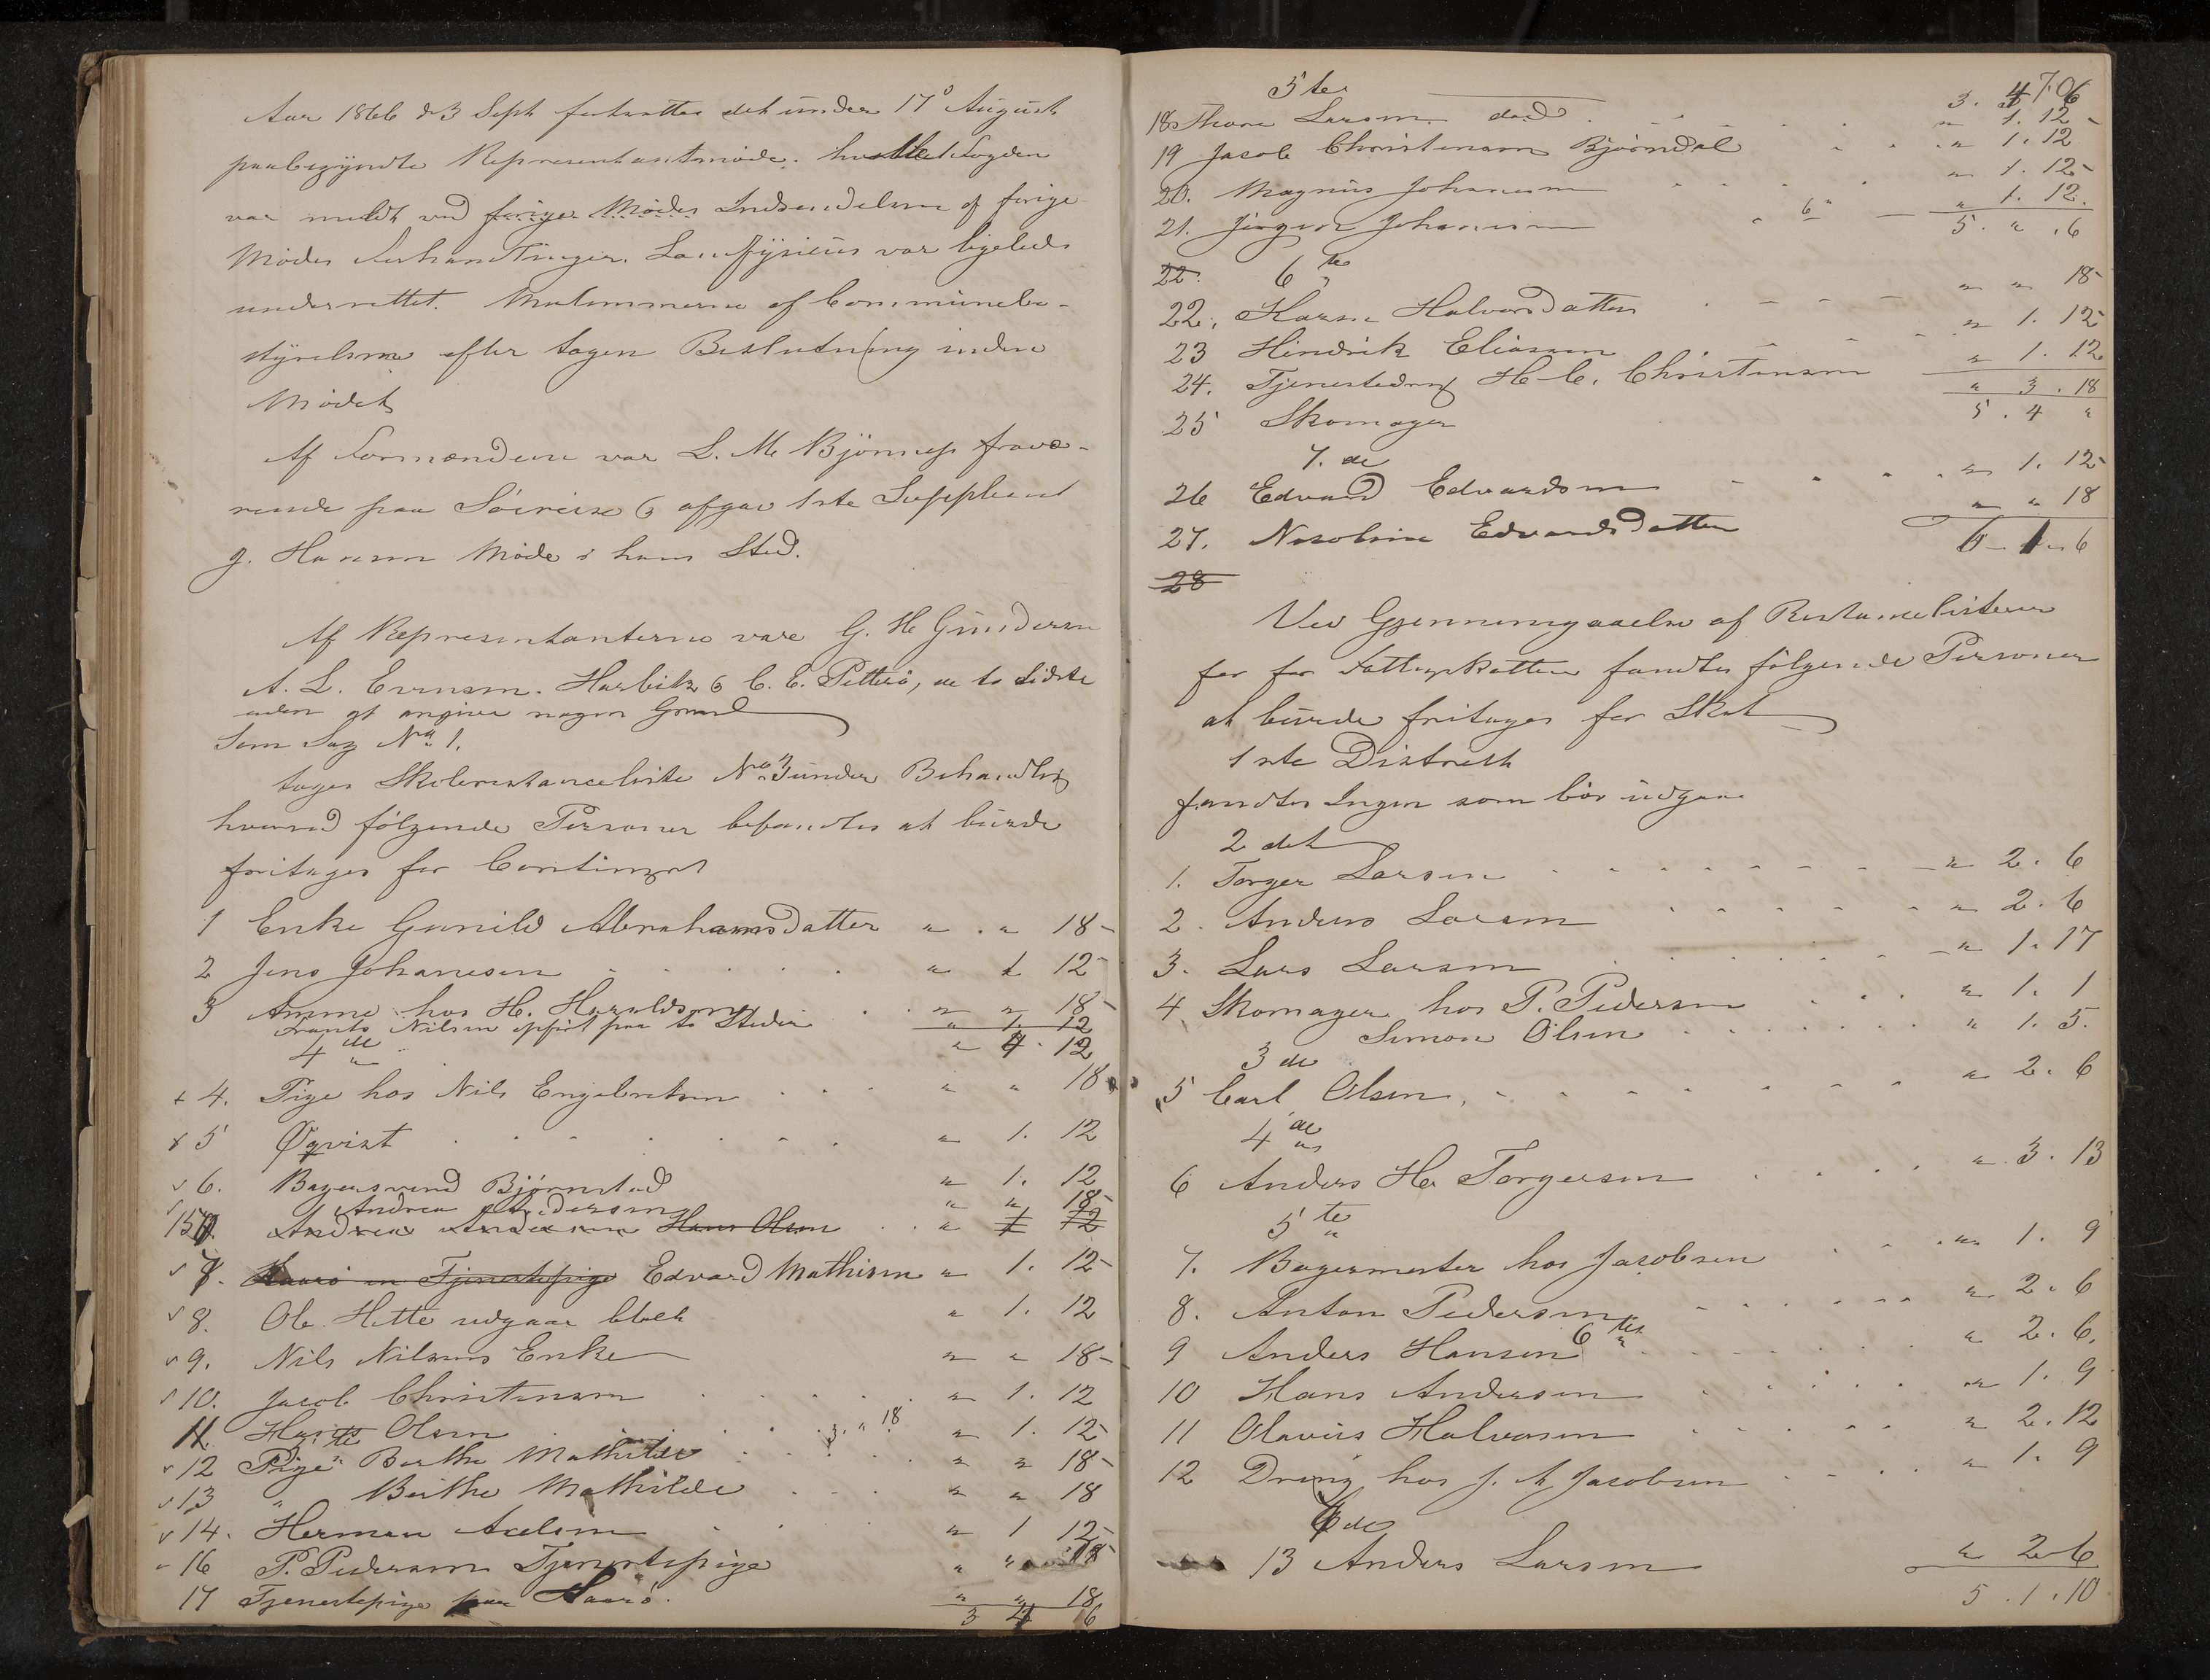 Aar 1866 d 3 Sept fortsattes det under 17º August
paabegyndte Repræsentantmøde.
var meldt ved forrige Mødes Indsendelsen af forige
Mødes Forhandlinger. Landfysicus var ligeledes
underrettet. af Communebe-
styrelsen efter tagen Beslutning inden
Mødet
Af Formændene var L. M. Bjönness fravæ-
rende paa Söireise & afgav 1ste Suppleant
J. Hansen Møde i hans Sted.
Af Repræsentanterne vare G. H. Gundersen
A. L. Evensen. Harbitz & C. E. Petterö, de to sidste
uden at angive nogen Grund
Som Sag No 1.
toges Skolerestanceliste No 3 under Behandling
hvorved fölgende Personer befandtes at burde
fritages for Contingent
1 Enke Gunild Abrahamsdatter " . " 18-
2 Jens Johanesen " 1 12
3 Amme hos H. Haraldsen " " 18-
Frants Nilsen opfört paa to Steder " 1. 12
4 de " 4. 12
+ 4. Pige hos Nils Engebretsen " " 18
x 5 Øqvist " 1. 12
v 6. Bagersvend Björnstad " 1. 12
Andrea Andersen " " 18-
15 Andrea Andersen Hans Olsen " 1 12
v 7. Haarö en Tjenestepige Edvard Mathisen " 1. 12-
v 8. Ole Hette udgaar " 1. 12
v 9. Nils Nilsens Enke " " 18-
v 10. Jacob Christensen " 1. 12
11. Hans Olsen 3. " 18 " 1. 12-
v 12 Pige Berthe Mathilde " " 18-
v 13 " Berthe Mathilde " " 18
v 14. Herman Axelsen " 1 12-
- 16 P. Pedersen Tjenestepige " " 18
17 Tjenestepige paa Haarö. " " 18
3 4 6
5 te 3. 4 6
70
18 Thore Larsen död " 1. 12-
19 Jacob Christensen Bjöirndal " 1. 12
20. Magnus Johanesen " 1. 12-
21. Jörgen Johanesen 6" " 1. 12.
5. " . 6
22. 6 te
22. Karen Halvorsdatter " " 18-
23 Hindrik Eliassen " 1. 12
24. Tjenestedreng H. C. Christensen " 1. 12
25 Skomager " 3. 18
5. 4 "
7. de
26 Edvard Edvardsen " 1. 12-
27. Nicoline Edvardsdatter " " 18
6 - 1 - 6
28
Ved Gjennemgaaelse af Restancelisterne
for for Fattigskatten fandtes fölgende Personer
at burde fritages for Skat
1ste Distrikt
fandtes Ingen som bör udgaa
2 det
1. Torger Larsen " 2. 6
2. Anders Larsen " 2. 6
3. Lars Larsen " 1. 17
4 Skomager hos P. Pedersen " 1. 1
Simon Olsen " 1. 5.
3 de
5 Carl Olsen, " 2. 6
4 de
6 Anders H. Torgersen " 3. 13
5 te
7. Bagermester hos Jacobsen " 1. 9
8. Anton Pedersen " 2. 6
6 te
9 Anders Hansen " 2. 6.
10 Hans Andersen " 1. 9
11 Olavus Halvorsen " 2. 12
12 Dreng hos J. A. Jacobsen " 1. 9
7 de
13 Anders Larsen " 2 6
5. 1. 10